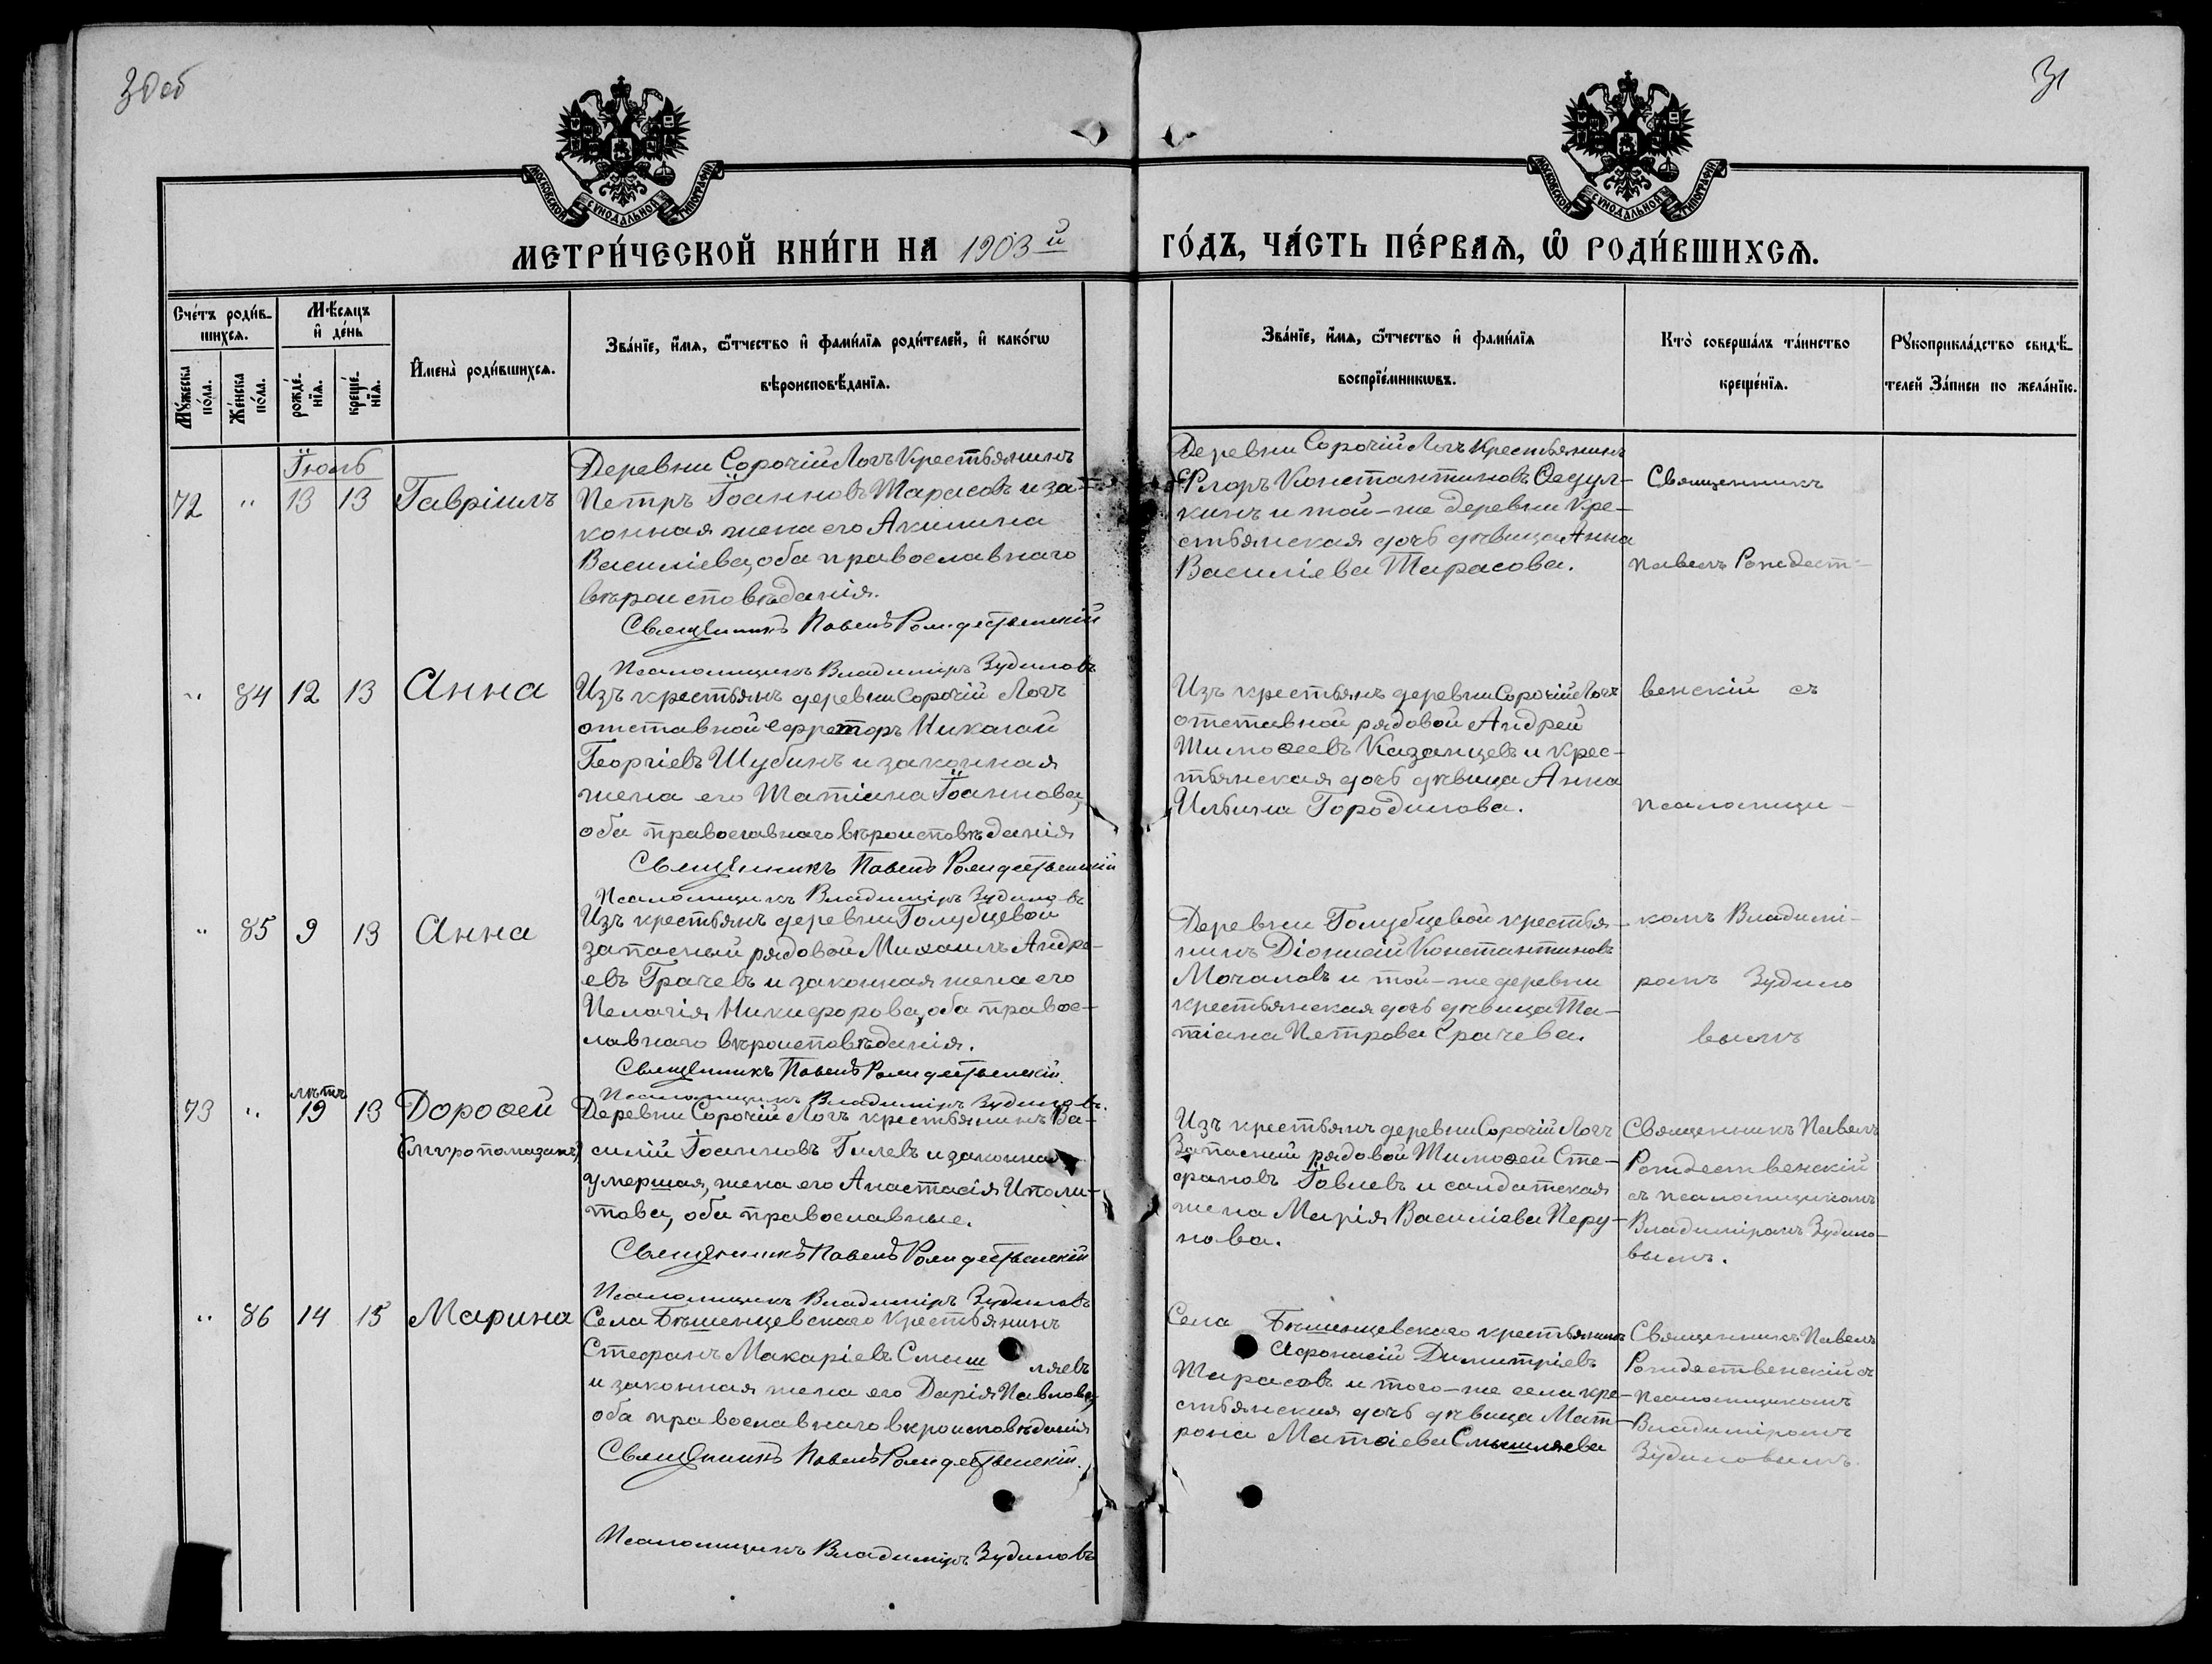 30об
31
МОСКОВСКОЙ СѴНОДАЛЬНОЙ ТИПОГРАФІИ
МОСКОВСКОЙ СѴНОДАЛЬНОЙ ТИПОГРАФІИ
МЕТРИ́ЧЕСКОЙ КНИ́ГИ НА 1903й
ГО́ДЪ, ЧА́СТЬ ПЕ́РВАѦ, Ѡ҆ РОДИ́ВШИХСѦ.
Сче́тъ роди́в-
шихсѧ.
Мꙋ́жеска
по́ла.
Же́нска
по́ла.
Мѣ́сѧцъ
и҆ де́нь
рожде́-
нїѧ.
креще́-
нїѧ.
И҆мена̀ роди́вшихсѧ.
Зва́нїе, и҆́мѧ, ѻ҆́тчество и҆ фами́лїѧ роди́телей, и҆ како́гѡ
вѣроисповѣ́данїѧ.
Зва́нїе, и҆́мѧ, ѻ҆́тчество и҆ фами́лїѧ
воспрїе́мникѡвъ.
Кто̀ соверша́лъ та́инство
креще́нїѧ.
Рꙋкоприкла́дство свидѣ́-
телей За́писи по жела́нїю.
Іюнь
72 " 13 13 Гавріилъ
Деревни Сорочій Логъ Крестьянинъ
Петръ Іоанновъ Тарасовъ и за-
конная жена его Акилина
Василіева, оба православнаго
вѣроисповѣданія.
Священникъ Павелъ Рождественскій
Псаломщикъ Владиміръ Зудиловъ
Деревни Сорочій Логъ Крестьянинъ
Флоръ Константиновъ Ѳедул-
кинъ и той-же деревни Кре-
стьянская дочь дѣвица Анна
Василіева Тарасова.
Священникъ
Павелъ Рождест-
" 84 12 13 Анна
Изъ крестьянъ деревни Сорочій Логъ
отставной ефрейторъ Николай
Георгіевъ Шубинъ и законная
жена его Татіана Іоаннова,
оба православнаго вѣроисповѣданія
Священникъ Павелъ Рождественскій
Псаломщикъ Владиміръ Зудиловъ
Изъ крестьянъ деревни Сорочій Логъ
отставной рядовой Андрей
Тимоѳеевъ Казанцевъ и крес-
тьянская дочь дѣвица Анна
Ильина Городилова.
венскій съ
псаломщи-
" 85 9 13 Анна
Изъ крестьянъ деревни Голубцевой
запасный рядовой Михаилъ Андре-
евъ Грачевъ и законная жена его
Пелагія Никифорова, оба правос-
лавнаго вѣроисповѣданія.
Священникъ Павелъ Рождественскій.
Псаломщикъ Владиміръ Зудиловъ.
Деревни Голубцевой крестья-
нинъ Діонисій Константиновъ
Мочаловъ и той-же деревни
крестьянская дочь дѣвица Та-
тіана Петрова Грачева.
комъ Владимі-
ромъ Зудило
вымъ
лѣтъ
73 " 19 13 Дороѳей
(мѵропомазанъ)
Деревни Сорочій Логъ крестьянинъ Ва-
силій Іоанновъ Гилевъ и законная
умершая, жена его Анастасія Иполи-
това, оба православные.
Священникъ Павелъ Рождественскій
Псаломщикъ Владиміръ Зудиловъ
Изъ крестьянъ деревни Сорочій Логъ
Запасный рядовой Тимоѳей Сте-
фановъ Іовлевъ и салдатская
жена Марія Василіева Перу-
нова.
Священникъ Павелъ
Рождественскій
съ псаломщикомъ
Владиміромъ Зудило-
вымъ.
" 86 14 15 Марина
Села Бѣшенцевскаго Крестьянинъ
Стефанъ Макаріевъ Смыш ляевъ
и законная жена его Дарія Павлова,
оба православнаго вѣроисповѣданія
Священникъ Павелъ Рождественскій.
Псаломщикъ Владиміръ Зудиловъ
Села Бѣшенцевскаго крестьянинъ
Афонасій Димитріевъ
Тарасовъ и того-же села кре-
стьянская дочь дѣвица Мат-
рона Матѳіева Смышляева
Священникъ Павелъ
Рождественскій съ
псаломщикомъ
Владиміромъ
Зудиловымъ.